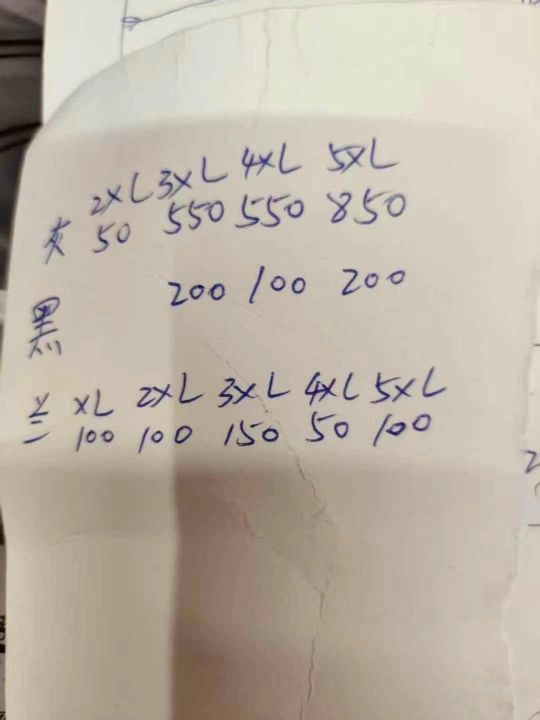 2XL 3XL 4XL 5XL
灰 50 550 550 850
黑 200 100 200
兰 XL 2XL 3XL 4XL 5XL
100 100 150 50 100